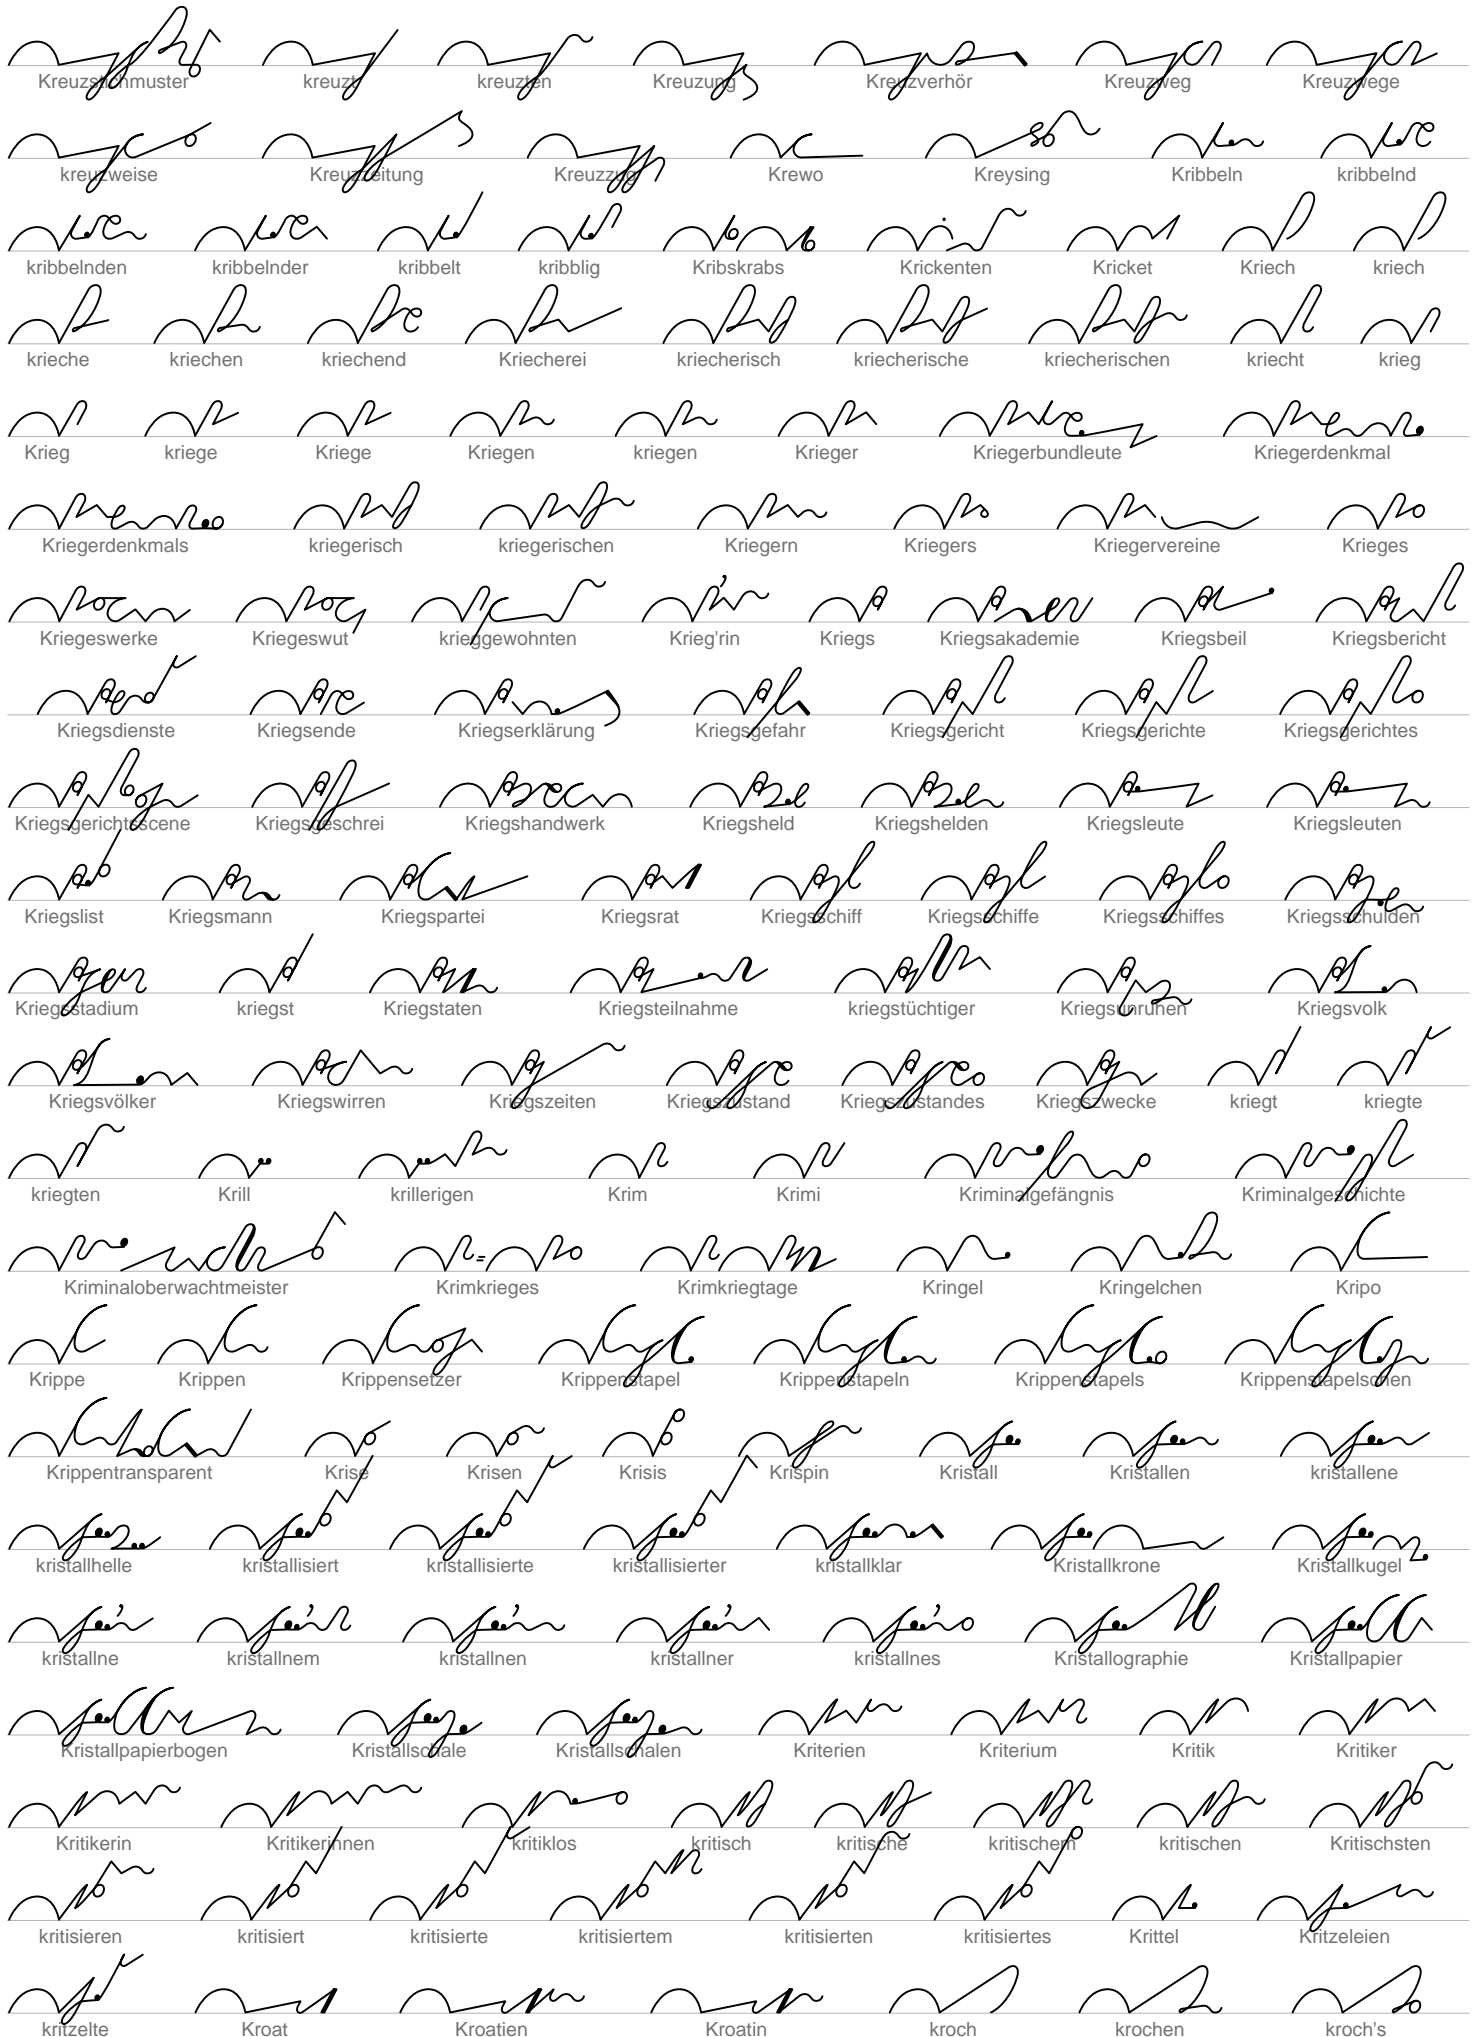 Kreuzstichmuster kreuzt kreuzten Kreuzung Kreuzverhör Kreuzweg Kreuzwege
kreuzweise Kreuzzeitung Kreuzzug Krewo Kreysing Kribbeln kribbelnd
kribbelnden kribbelnder kribbelt kribblig Kribskrabs Krickenten Kricket Kriech kriech
krieche kriechen kriechend Kriecherei kriecherisch kriecherische kriecherischen kriecht krieg
Krieg kriege Kriege Kriegen kriegen Krieger Kriegerbundleute Kriegerdenkmal
Kriegerdenkmals kriegerisch kriegerischen Kriegern Kriegers Kriegervereine Krieges
Kriegeswerke Kriegeswut krieggewohnten Krieg'rin Kriegs Kriegsakademie Kriegsbeil Kriegsbericht
Kriegsdienste Kriegsende Kriegserklärung Kriegsgefahr Kriegsgericht Kriegsgerichte Kriegsgerichtes
Kriegsgerichtsscene Kriegsgeschrei Kriegshandwerk Kriegsheld Kriegshelden Kriegsleute Kriegsleuten
Kriegslist Kriegsmann Kriegspartei Kriegsrat Kriegsschiff Kriegsschiffe Kriegsschiffes Kriegsschulden
Kriegsstadium kriegst Kriegstaten Kriegsteilnahme kriegstüchtiger Kriegsunruhen Kriegsvolk
Kriegsvölker Kriegswirren Kriegszeiten Kriegszustand Kriegszustandes Kriegszwecke kriegt kriegte
kriegten Krill krillerigen Krim Krimi Kriminalgefängnis Kriminalgeschichte
Kriminaloberwachtmeister Krimkrieges Krimkriegtage Kringel Kringelchen Kripo
Krippe Krippen Krippensetzer Krippenstapel Krippenstapeln Krippenstapels Krippenstapelschen
Krippentransparent Krise Krisen Krisis Krispin Kristall Kristallen kristallene
kristallhelle kristallisiert kristallisierte kristallisierter kristallklar Kristallkrone Kristallkugel
kristallne kristallnem kristallnen kristallner kristallnes Kristallographie Kristallpapier
Kristallpapierbogen Kristallschale Kristallschalen Kriterien Kriterium Kritik Kritiker
Kritikerin Kritikerinnen kritiklos kritisch kritische kritischem kritischen Kritischsten
kritisieren kritisiert kritisierte kritisiertem kritisierten kritisiertes Krittel Kritzeleien
kritzelte Kroat Kroatien Kroatin kroch krochen kroch's